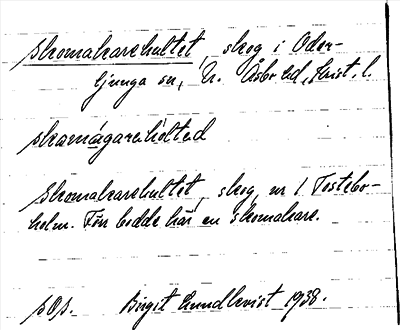 Skomakarehultet, skog i Oder-
ljunga sn, N. Åsbo hd, Krist. l.
skomágarehòlted
Skomakarehultet, skog nr 1 Tostebo-
holm. Förr bodde här en skomakare.
Birgit Lundkvist 1938.